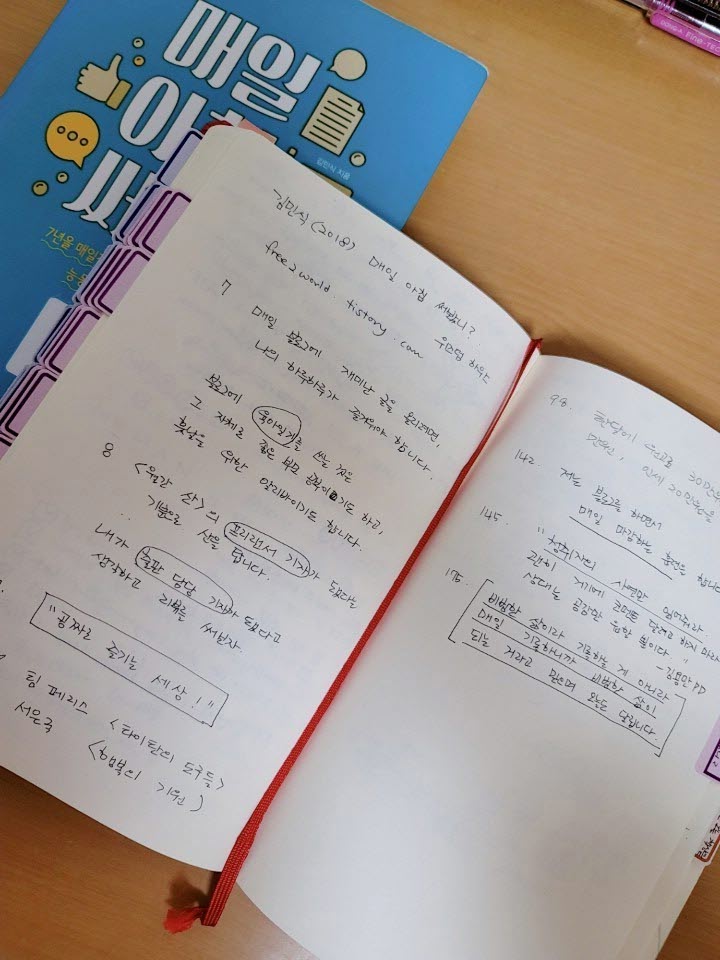 매일
아침
써
김민식 지음
7년을 매일
김민식 (2018) 매일 아침 써봤니?
free2world.tistory.com 위즈덤 하우스
7 매일 블로그에 재미난 글을 올리려면,
나의 하루하루가 즐거워야 합니다.
블로그에 육아일기를 쓰는 것은
그 자체로 좋은 부모 공부이기도 하고,
훗날을 위한 알리바이기도 합니다.
8 <월간 산>의 프리랜서 기자가 됐다는
기분으로 산을 탑니다.
내가 출판 담당 기자가 됐다고
생각하고 리뷰를 써보자.
"공짜로 즐기는 세상!"
팀 페리스 <타이탄의 도구들>
서은국 <행복의 기원>
98. 한달에 원고료 30만원
인세 30만원
142. 저는 블로그를 하면서
매일 마감하는 훈련을 합니다
145 "청취자의 사연만 읽어줘라.
괜히 거기에 코멘트 달려고 하지 마라
상대는 공감만 원할 뿐이다."
-김용만PD
176. 비범한 삶이라 기록하는 게 아니라
매일 기록하니까 비범한 삶이
되는 거라고 믿으며 오늘도 달립니다.
DONG-A Fine-TEC